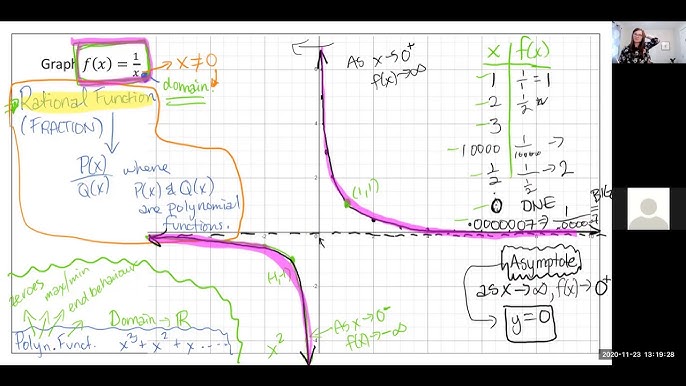 Graph f(x) = 1/x → x ≠ 0
domain
Rational Function
(FRACTION)
P(x)/Q(x) where
P(x) & Q(x)
are polynomial
functions.
zeroes
max/min
end behaviour
Domain → ℝ
Polyn. Funct. x³ + x² + x .....
x²
As x→0⁺
f(x)→∞
(1,1)
As x→0⁻
f(x)→-∞
x f(x)
1 1/1 = 1
2 1/2
3
10000 1/10000 →
1/2 1/(1/2) → 2
0 DNE
.0000007 → BIG
Asymptote
as x→∞, f(x)→0⁺
y=0
2020-11-23 13:19:28